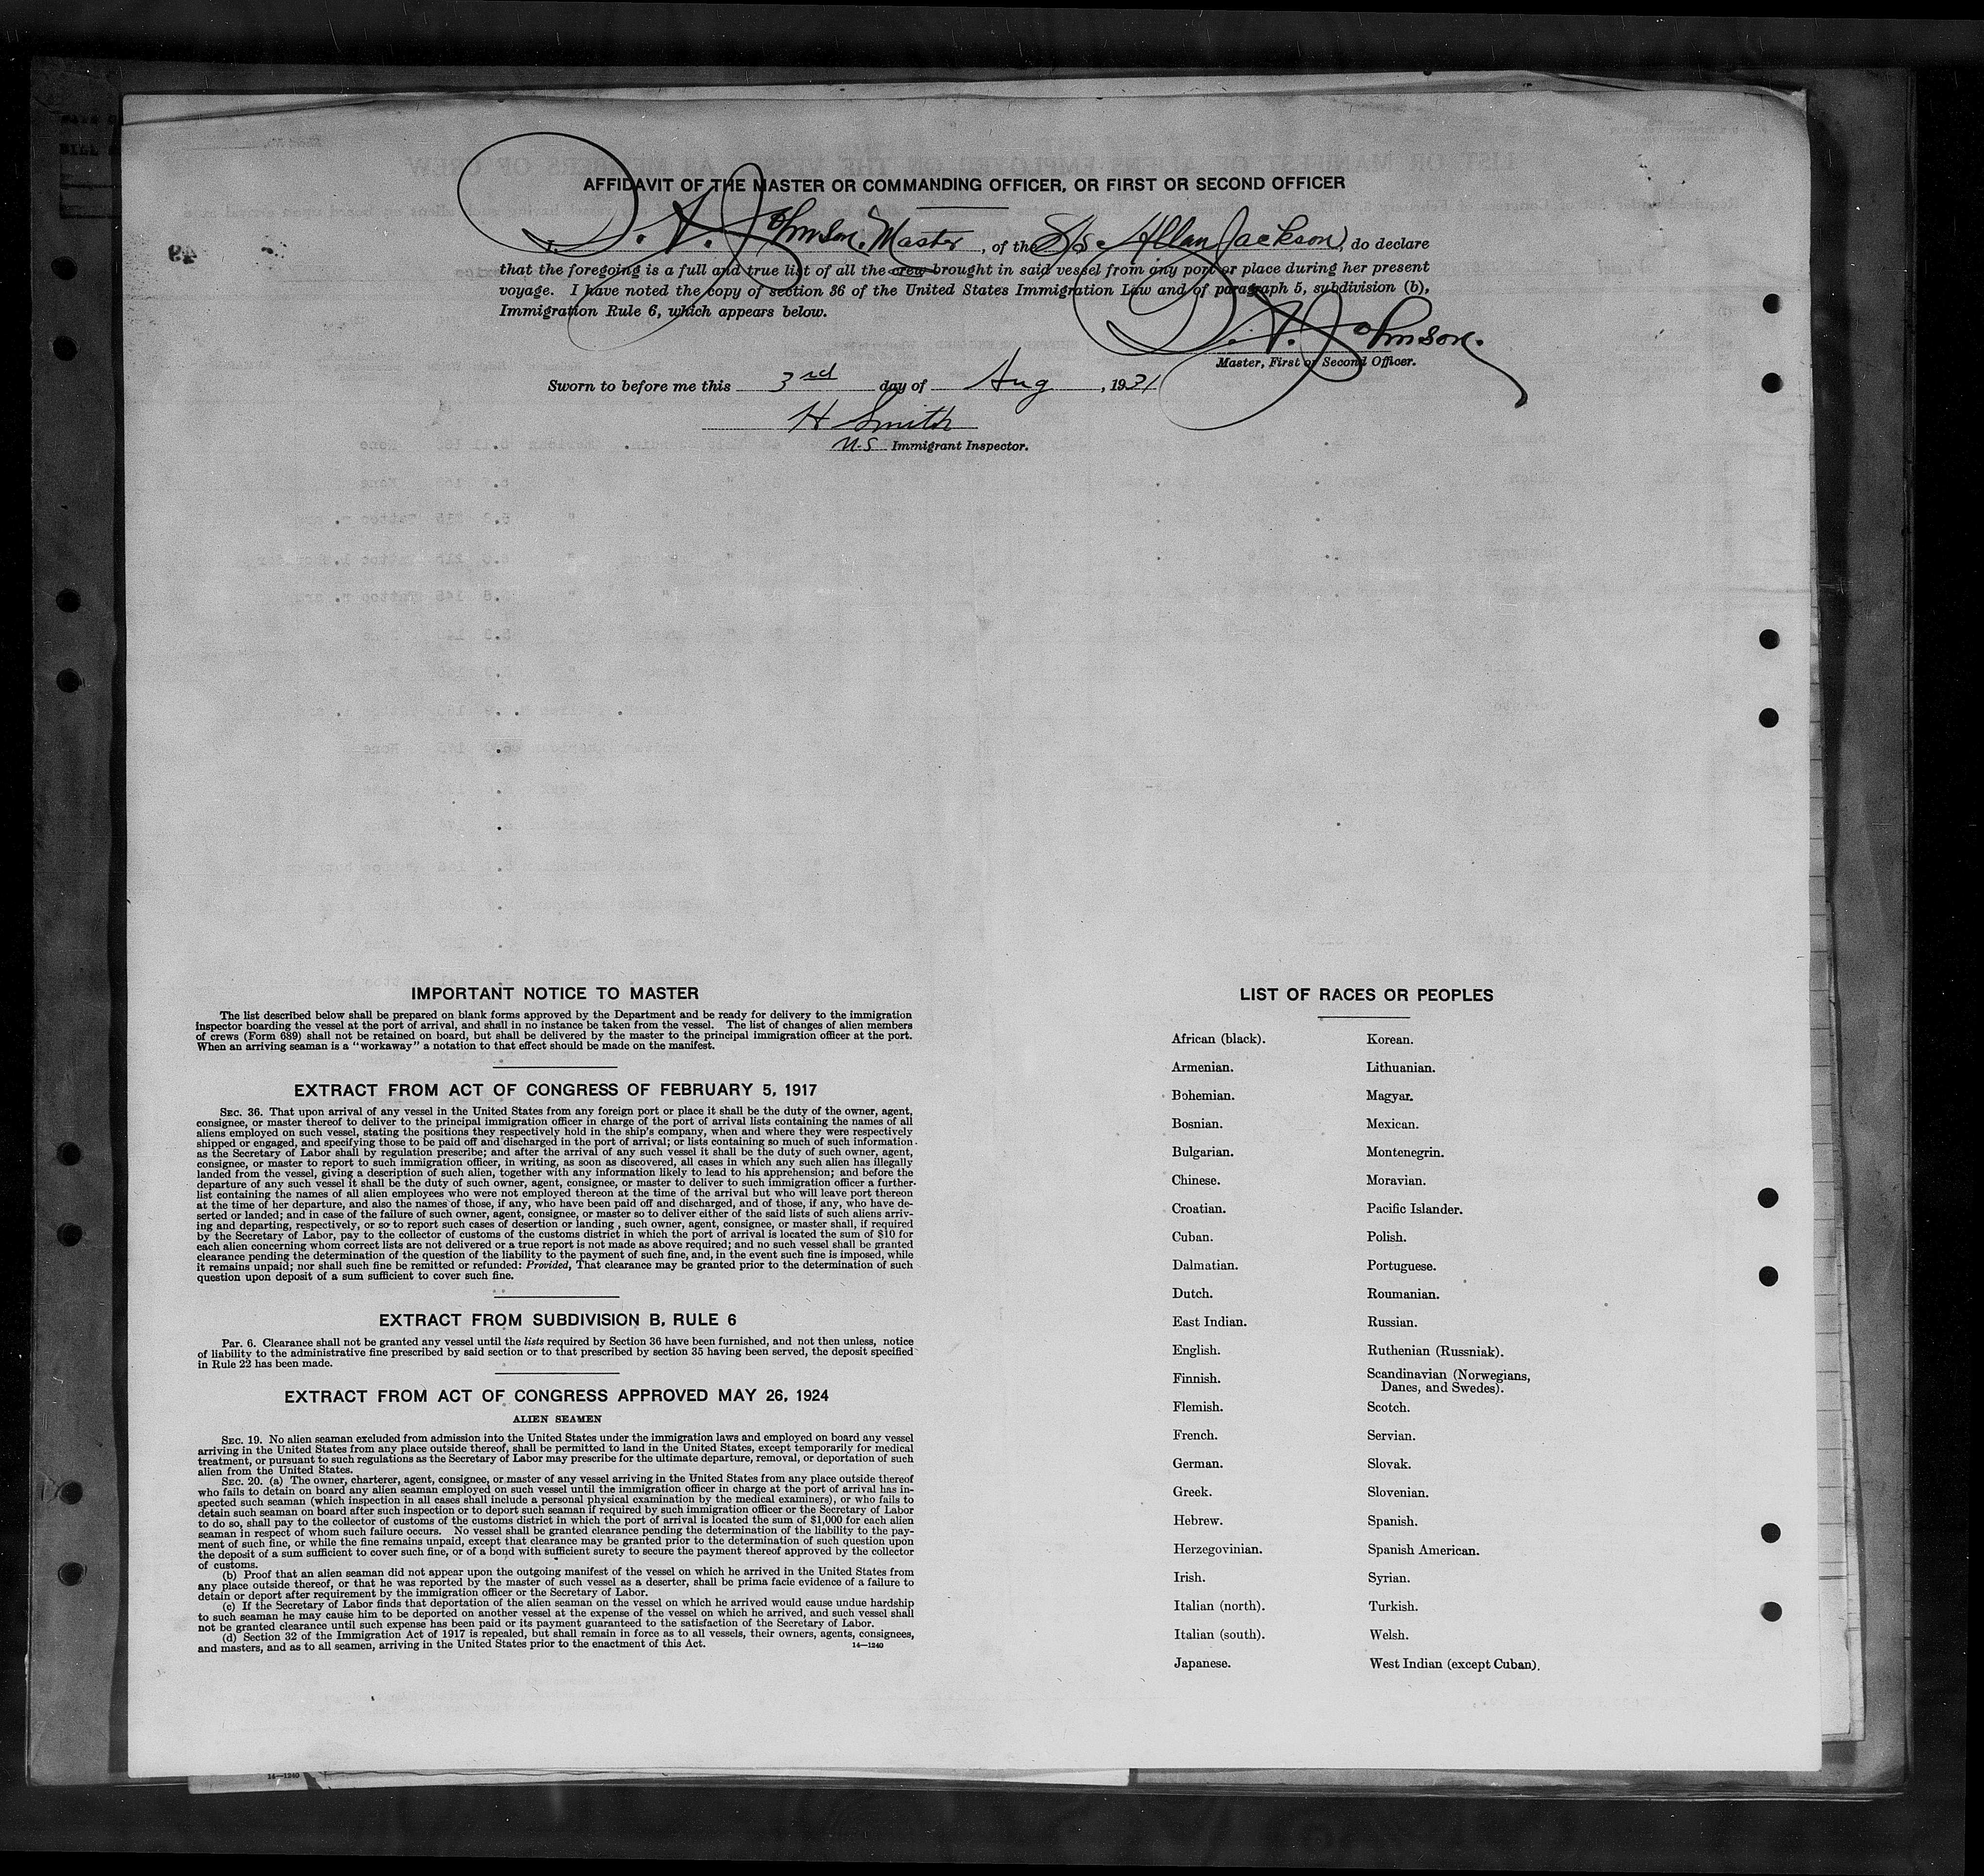 AFFIDAVIT OF THE MASTER OR COMMANDING OFFICER, OR FIRST OR SECOND OFFICER
I, D. A. Johnson. Master, of the S/S Allan Jackson, do declare
that the foregoing is a full and true list of all the crew brought in said vessel from any port or place during her present
voyage. I have noted the copy of section 36 of the United States Immigration Law and of paragraph 5, subdivision (b),
Immigration Rule 6, which appears below.
D. A. Johnson.
Master, First or Second Officer.
Sworn to before me this 3rd day of Aug, 1931
H Smith
U.S Immigrant Inspector.
IMPORTANT NOTICE TO MASTER
The list described below shall be prepared on blank forms approved by the Department and be ready for delivery to the immigration
inspector boarding the vessel at the port of arrival, and shall in no instance be taken from the vessel. The list of changes of alien members
of crews (Form 689) shall not be retained on board, but shall be delivered by the master to the principal immigration officer at the port.
When an arriving seaman is a "workaway" a notation to that effect should be made on the manifest.
EXTRACT FROM ACT OF CONGRESS OF FEBRUARY 5, 1917
SEC. 36. That upon arrival of any vessel in the United States from any foreign port or place it shall be the duty of the owner, agent,
consignee, or master thereof to deliver to the principal immigration officer in charge of the port of arrival lists containing the names of all
aliens employed on such vessel, stating the positions they respectively hold in the ship's company, when and where they were respectively
shipped or engaged, and specifying those to be paid off and discharged in the port of arrival; or lists containing so much of such information
as the Secretary of Labor shall by regulation prescribe; and after the arrival of any such vessel it shall be the duty of such owner, agent,
consignee, or master to report to such immigration officer, in writing, as soon as discovered, all cases in which any such alien has illegally
landed from the vessel, giving a description of such alien, together with any information likely to lead to his apprehension; and before the
departure of any such vessel it shall be the duty of such owner, agent, consignee, or master to deliver to such immigration officer a further
list containing the names of all alien employees who were not employed thereon at the time of the arrival but who will leave port thereon
at the time of her departure, and also the names of those, if any, who have been paid off and discharged, and of those, if any, who have de-
serted or landed; and in case of the failure of such owner, agent, consignee, or master so to deliver either of the said lists of such aliens arriv-
ing and departing, respectively, or so to report such cases of desertion or landing , such owner, agent, consignee, or master shall, if required
by the Secretary of Labor, pay to the collector of customs of the customs district in which the port of arrival is located the sum of $10 for
each alien concerning whom correct lists are not delivered or a true report is not made as above required; and no such vessel shall be granted
clearance pending the determination of the question of the liability to the payment of such fine, and, in the event such fine is imposed, while
it remains unpaid; nor shall such fine be remitted or refunded: Provided, That clearance may be granted prior to the determination of such
question upon deposit of a sum sufficient to cover such fine.
EXTRACT FROM SUBDIVISION B, RULE 6
Par. 6. Clearance shall not be granted any vessel until the lists required by Section 36 have been furnished, and not then unless, notice
of liability to the administrative fine prescribed by said section or to that prescribed by section 35 having been served, the deposit specified
in Rule 22 has been made.
EXTRACT FROM ACT OF CONGRESS APPROVED MAY 26, 1924
ALIEN SEAMEN
SEC. 19. No alien seaman excluded from admission into the United States under the immigration laws and employed on board any vessel
arriving in the United States from any place outside thereof, shall be permitted to land in the United States, except temporarily for medical
treatment, or pursuant to such regulations as the Secretary of Labor may prescribe for the ultimate departure, removal, or deportation of such
alien from the United States.
SEC. 20. (a) The owner, charterer, agent, consignee, or master of any vessel arriving in the United States from any place outside thereof
who fails to detain on board any alien seaman employed on such vessel until the immigration officer in charge at the port of arrival has in-
spected such seaman (which inspection in all cases shall include a personal physical examination by the medical examiners), or who fails to
detain such seaman on board after such inspection or to deport such seaman if required by such immigration officer or the Secretary of Labor
to do so, shall pay to the collector of customs of the customs district in which the port of arrival is located the sum of $1,000 for each alien
seaman in respect of whom such failure occurs. No vessel shall be granted clearance pending the determination of the liability to the pay-
ment of such fine, or while the fine remains unpaid, except that clearance may be granted prior to the determination of such question upon
the deposit of a sum sufficient to cover such fine, or of a bond with sufficient surety to secure the payment thereof approved by the collector
of customs.
(b) Proof that an alien seaman did not appear upon the outgoing manifest of the vessel on which he arrived in the United States from
any place outside thereof, or that he was reported by the master of such vessel as a deserter, shall be prima facie evidence of a failure to
detain or deport after requirement by the immigration officer or the Secretary of Labor.
(c) If the Secretary of Labor finds that deportation of the alien seaman on the vessel on which he arrived would cause undue hardship
to such seaman he may cause him to be deported on another vessel at the expense of the vessel on which he arrived, and such vessel shall
not be granted clearance until such expense has been paid or its payment guaranteed to the satisfaction of the Secretary of Labor.
(d) Section 32 of the Immigration Act of 1917 is repealed, but shall remain in force as to all vessels, their owners, agents, consignees,
and masters, and as to all seamen, arriving in the United States prior to the enactment of this Act.
14—1240
LIST OF RACES OR PEOPLES
African (black).
Armenian.
Bohemian.
Bosnian.
Bulgarian.
Chinese.
Croatian.
Cuban.
Dalmatian.
Dutch.
East Indian.
English.
Finnish.
Flemish.
French.
German.
Greek.
Hebrew.
Herzegovinian.
Irish.
Italian (north).
Italian (south).
Japanese.
Korean.
Lithuanian.
Magyar.
Mexican.
Montenegrin.
Moravian.
Pacific Islander.
Polish.
Portuguese.
Roumanian.
Russian.
Ruthenian (Russniak).
Scandinavian (Norwegians,
Danes, and Swedes).
Scotch.
Servian.
Slovak.
Slovenian.
Spanish.
Spanish American.
Syrian.
Turkish.
Welsh.
West Indian (except Cuban).
14—1240